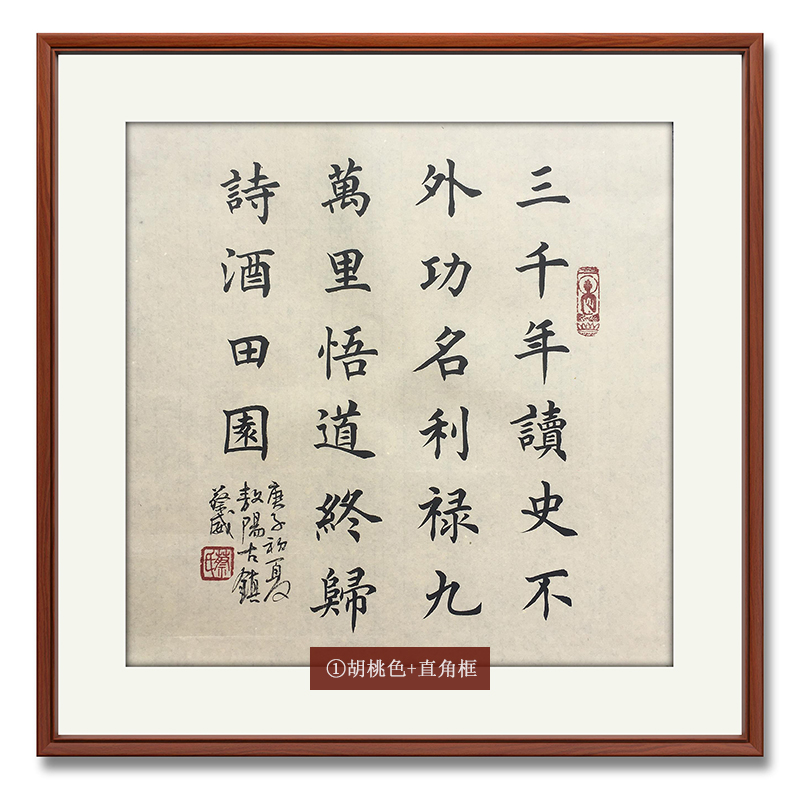 三千年讀史不
外功名利禄九
萬里悟道終歸
詩酒田園
庚子初夏
敖陽古鎮
蔡威
蔡氏
①胡桃色+直角框